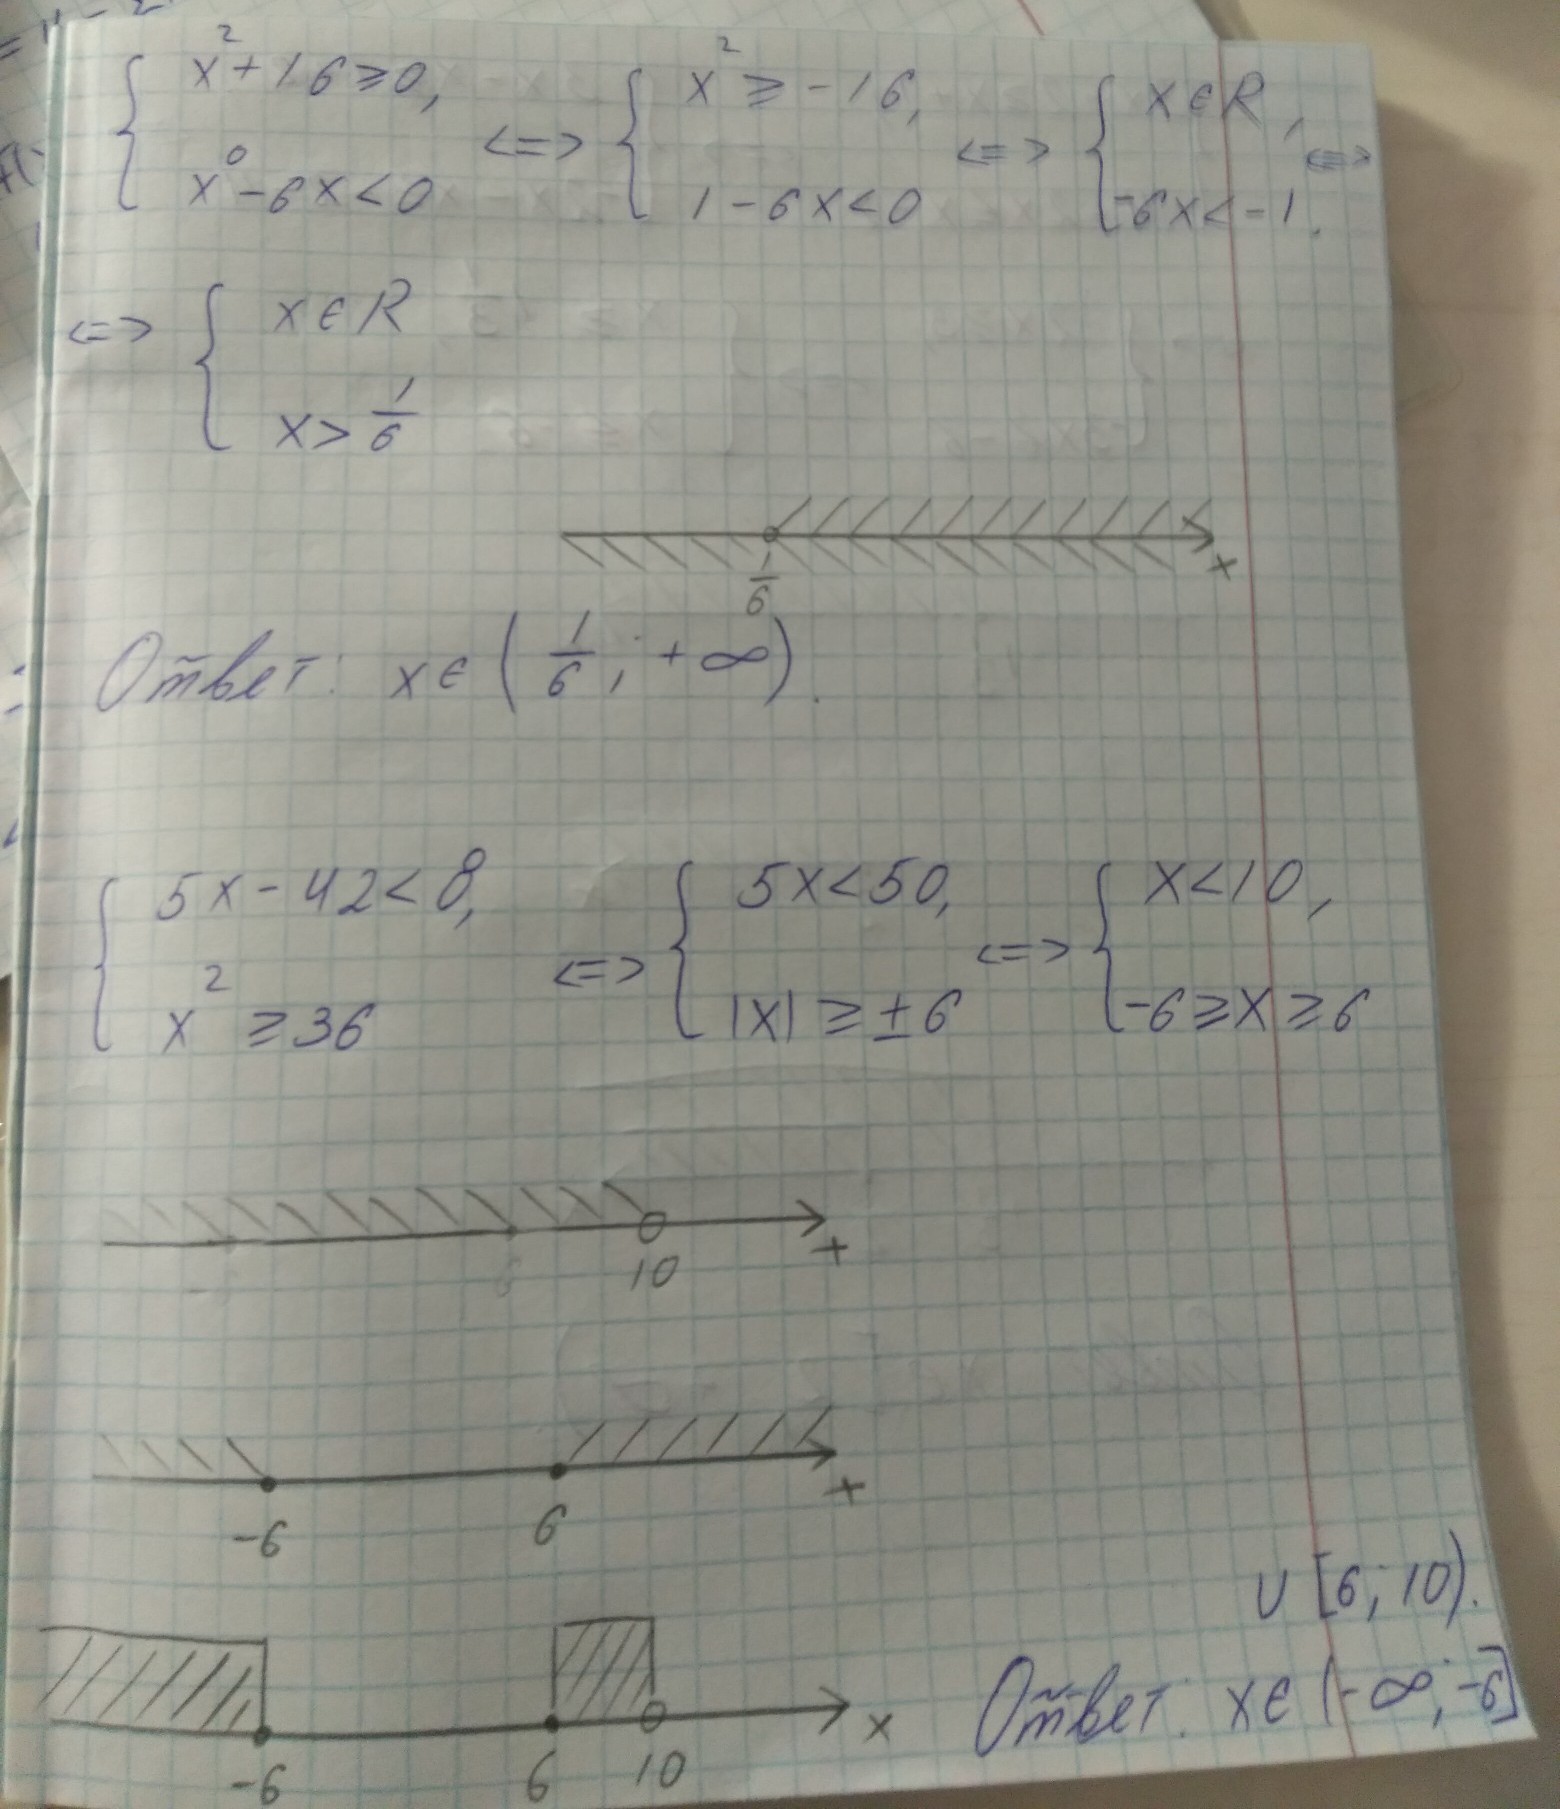 { x² + 16 ≥ 0, x⁰ - 6x < 0 <=> { x² ≥ -16, 1 - 6x < 0 <=> { x ∈ R, -6x < -1. <=>
<=> { x ∈ R x > 1/6
1/6 x
Ответ: x ∈ (1/6; +∞).
{ 5x - 42 < 8, x² ≥ 36 <=> { 5x < 50, |x| ≥ ±6 <=> { x < 10, -6 ≥ x ≥ 6
10 x
-6 6 x
-6 6 10 x
Ответ: x ∈ (-∞; -6]
∪ [6; 10).